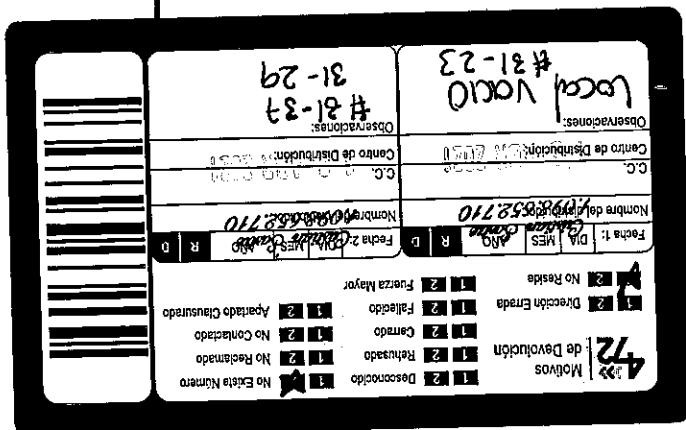 472
Motivos de Devolución
1 2 Desconocido
1 2 Rehusado
1 2 Cerrado
1 2 Fallecido
1 2 Fuerza Mayor
1 2 No Existe Número
1 2 No Reclamado
1 2 No Contactado
1 2 Apartado Clausurado
1 2 Dirección Errada
1 2 No Reside
Fecha 1: DIA MES AÑO R D
Nombre del distribuidor:
1.098.652.710
C.C.
Centro de Distribución:
Observaciones:
Local vacio
# 31-23
Fecha 2: DIA MES AÑO R D
Nombre del distribuidor:
1.098.652.710
C.C.
Centro de Distribución:
Observaciones:
# 31-37
31-29